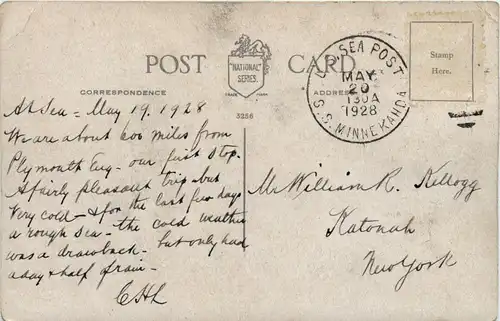 POST CARD
"NATIONAL" SERIES.
TRADE MARK
CORRESPONDENCE
ADDRESS
3256
Stamp
Here.
SEA POST
MAY
20
130A
1928
S.S. MINNEKAHDA
At Sea - May 19. 1928
We are about 600 miles from
Plymouth Eng - our first stop.
A fairly pleasant trip but
very cold - & for the last few days
a rough sea - the cold weather
was a drawback - but only had
a day & half of rain -
Mr William R. Kellogg
Katonah
New York